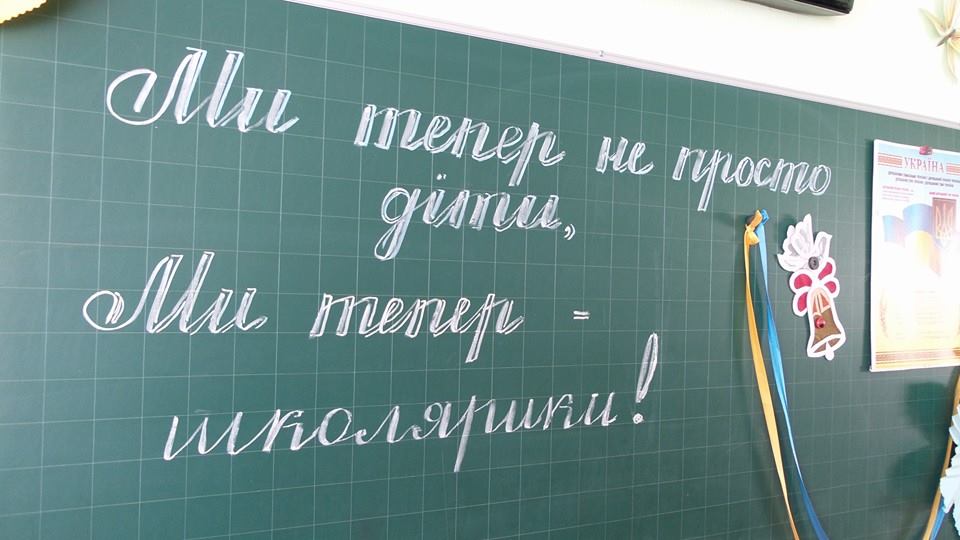 Ми тепер не просто
діти,
Ми тепер -
школярики!
УКРАЇНА